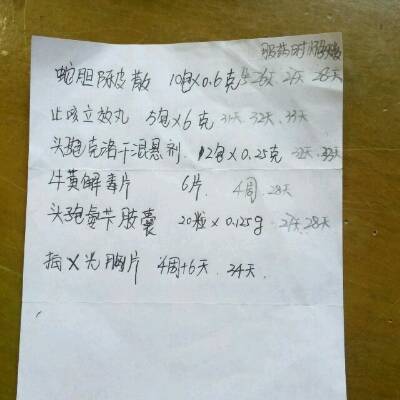 服药时
蛇胆陈皮散 10包×0.6克 26天 27天 28天
止咳立效丸 5包×6克 31天、32天、33天
头孢克洛干混悬剂 12包×0.25克 32天、33天
牛黄解毒片 6片. 4周、28天
头孢氨苄胶囊 20粒×0.125g 27天、28天
拍X光胸片 4周+6天、34天.